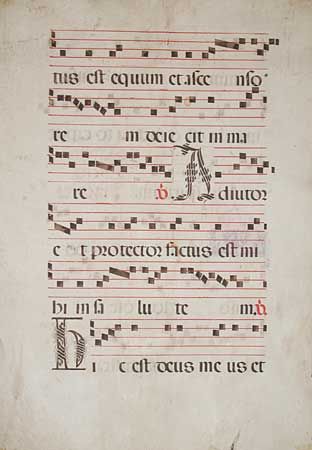 tus est equum et asce nso
re in deie cit in ma
re ℣. A diutor
e t protector factus est mi
hi in sa lu te m. ℣.
H i c est deus me us et